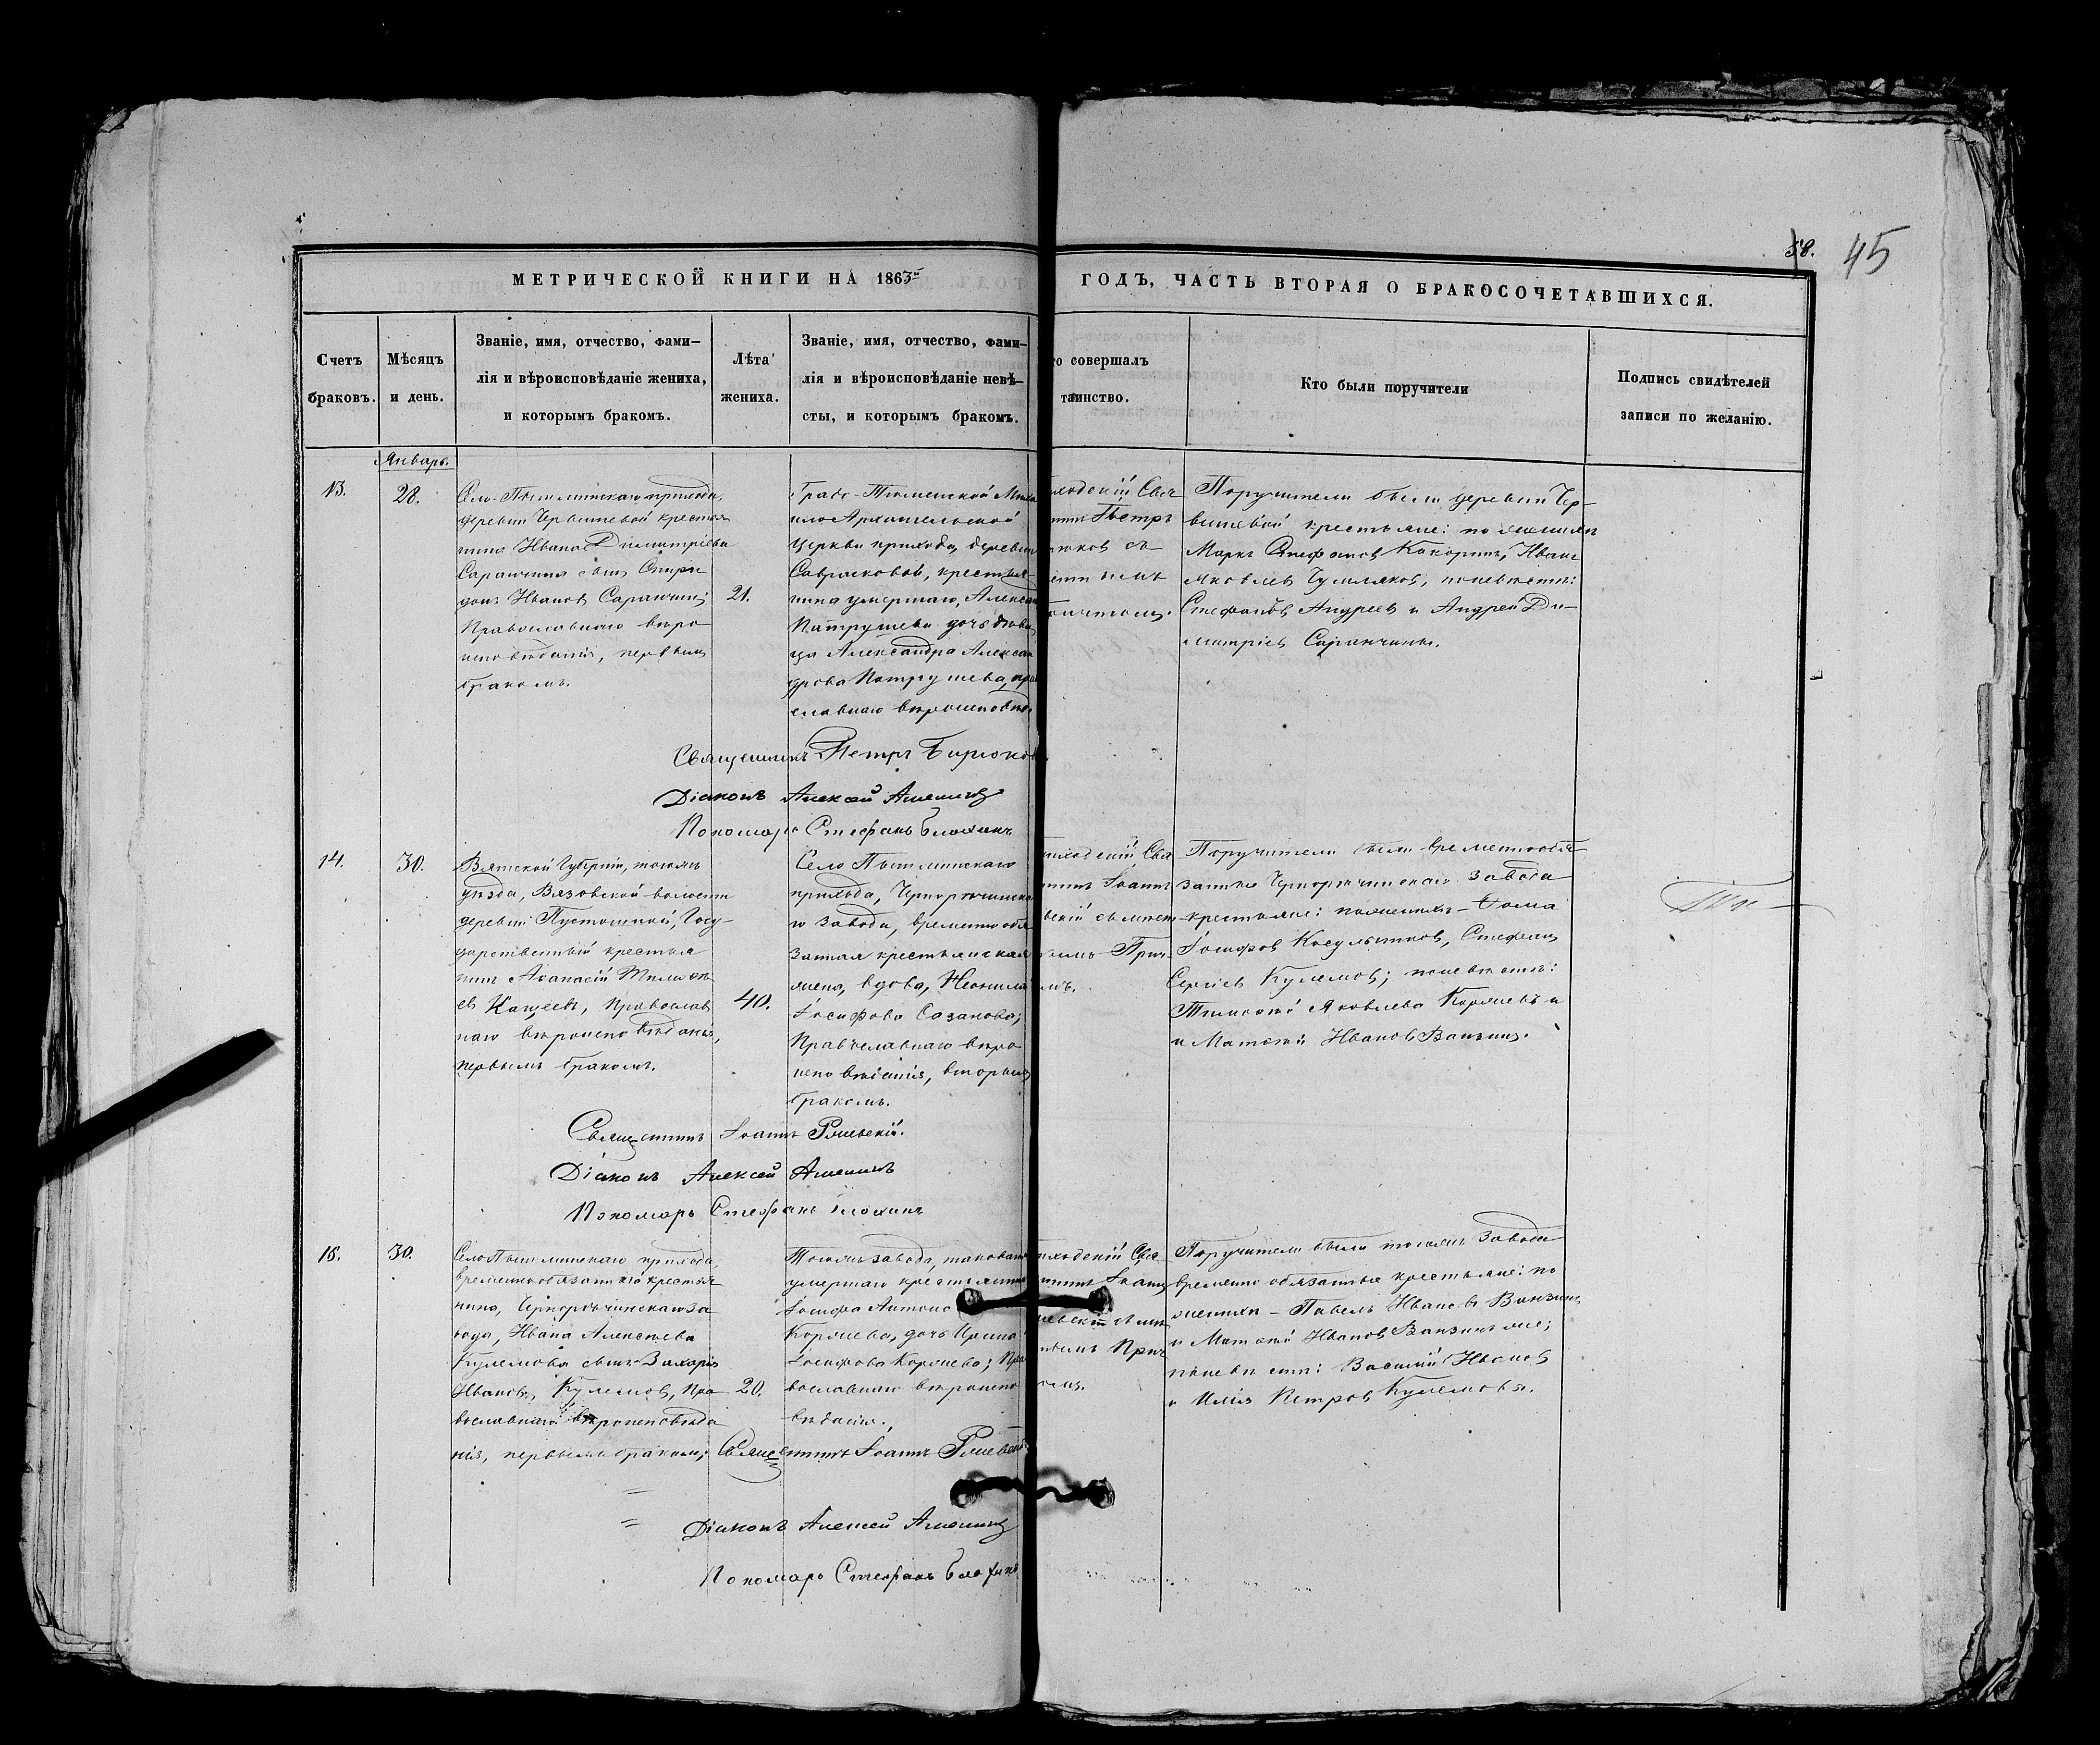 58. 45
МЕТРИЧЕСКОЙ КНИГИ НА 1863й ГОДЪ, ЧАСТЬ ВТОРАЯ О БРАКОСОЧЕТАВШИХСЯ.
Счетъ
браковъ.
Мѣсяцъ
и день.
Званіе, имя, отчество, фами-
лія и вѣроисповѣданіе жениха,
и которымъ бракомъ.
Лѣта
жениха.
Званіе, имя, отчество, фами-
лія и вѣроисповѣданіе невѣ-
сты, и которымъ бракомъ.
о совершалъ
таинство.
Кто были поручители
Подпись свидѣтелей
записи по желанію.
Январь.
13.
28.
Село-Пышминскаго прихода,
деревни Червишевой крестья
нина Ивана Димитріева
Саранчина сынъ Спири
донъ Ивановъ Саранчинъ;
Православнаго вѣро
исповѣданія, первымъ
бракомъ.
21.
Градо-Тюменской Миха
ило Архангельской
церкви прихода, деревни
Саврасковой, крестья-
нина умершаго, Алексан
Патрушева дочь дѣви
ца Александра Алексан
дрова Патрушева, пра
славнаго вѣроисповѣд.
иходскій Свя
нникъ Петръ
рюковъ съ
Причтомъ.
Поручители были деревни Чер-
вишевой крестьяне: по женихѣ
Маркъ Стефановъ Кокоринъ, Иванъ
Яковлевъ Чумляковъ, поневѣстѣ:
Стефанъ Андреевъ и Андрей Ди-
митріевъ Саранчины.
Священникъ Петръ Бирюковъ
Діаконъ Алексѣй
Пономарь Стефанъ Блохинъ
14.
30.
Вятской Губерніи, тогожъ
уѣзда, Вязовской волости
деревни Пустошной, Госу-
дарственный крестья
нинъ Аѳанасій Тимоѳе
евъ Кащеевъ, Православ
наго вѣроисповѣданія,
первымъ бракомъ.
40.
Село Пышминскаго
прихода, Чернорѣчинска
го завода, временнообя
занная крестьянская
жена, вдова, Неонила
Іосифова Созанова;
Православнаго вѣро
исповѣданія, вторымъ
бракомъ.
риходскій Свя
нникъ Іоаннъ
вскій съ
Прич
мъ.
Поручители были временнообя
занные Чернорѣчинскаго завода
крестьяне: поженихѣ - Ѳома
Іосифовъ Косулитиновъ, Стефанъ
Сергіевъ Кулемовъ; поневѣстѣ:
Тимоѳей Яковлевъ Коряевъ и
и Матѳей Ивановъ Ванзинъ.
Священникъ Іоаннъ Ржевскій.
Діаконъ Алексѣй
Пономарь Стефанъ Блохинъ
15.
30.
Село Пышминскаго прихода,
временнообязаннаго крестья
нина, Чернорѣчинскаго за
вода, Ивана Алексѣева
Кулемова сынъ Захарій
Ивановъ, Кулемовъ, Пра
вославнаго вѣроисповѣда
нія, первымъ бракомъ;
20.
Тогожъ завода, таковаго
умершаго крестьянина
Іосифа Антоно
Коряева, дочь Ирина
Іосифова Коряева; Пра
вославнаго вѣроиспо
вѣданія.
иходскій Свя
нникъ Іоаннъ
Прич
омъ.
Поручители были тогожъ завода
временно обязанные крестьяне: по
женихѣ - Павелъ Ивановъ Ванзинъ
и Матѳей Ивановъ Ванзинъ же;
поневѣстѣ: Василій Ивановъ
и Илія Петровъ Кулемовы.
Священникъ Іоаннъ Ржевскій
Діаконъ Алексѣй
Пономарь Стефанъ Блохинъ